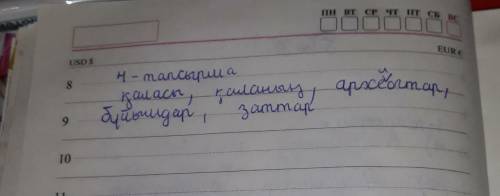 ПН ВТ СР ЧТ ПТ СБ ВС
USD $ EUR €
8 4-тапсырма
қаласы, қаланың, археологтар,
9 бұйымдар, заттар
10